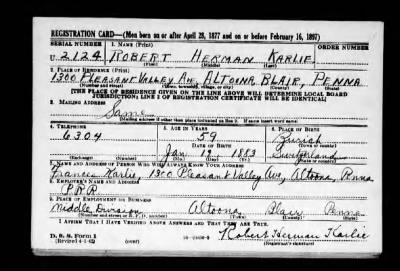 REGISTRATION CARD—(Men born on or after April 28, 1877 and on or before February 16, 1897)
SERIAL NUMBER 1. NAME (Print)
U 2124 ROBERT HERMAN KARLIE
(First) (Middle) (Last)
2. PLACE OF RESIDENCE (Print)
1300 PLEASANT VALLEY AV, ALTOONA BLAIR, PENNA
(Number and street) (Town, township, village, or city) (County) (State)
[THE PLACE OF RESIDENCE GIVEN ON THE LINE ABOVE WILL DETERMINE LOCAL BOARD
JURISDICTION; LINE 2 OF REGISTRATION CERTIFICATE WILL BE IDENTICAL]
3. MAILING ADDRESS
Same
[Mailing address if other than place indicated on line 2. If same insert word same]
4. TELEPHONE 5. AGE IN YEARS 6. PLACE OF BIRTH
6304 59 Zurich
DATE OF BIRTH (Town or county)
Jan. 19 1883 Switzerland
(Exchange) (Number) (Mo.) (Day) (Yr.) (State or country)
7. NAME AND ADDRESS OF PERSON WHO WILL ALWAYS KNOW YOUR ADDRESS
Karlie, 1300 Pleasant Valley Av, Altoona, Penna
8. EMPLOYER'S NAME AND ADDRESS
P.R.R.
9. PLACE OF EMPLOYMENT OR BUSINESS
Middle Division Altoona Blair Penna
(Number and street or R. F. D. number) (Town) (County) (State)
I AFFIRM THAT I HAVE VERIFIED ABOVE ANSWERS AND THAT THEY ARE TRUE.
D. S. S. Form 1
(Revised 4-1-42) (over) Robert Herman Karlie
(Registrant's signature)